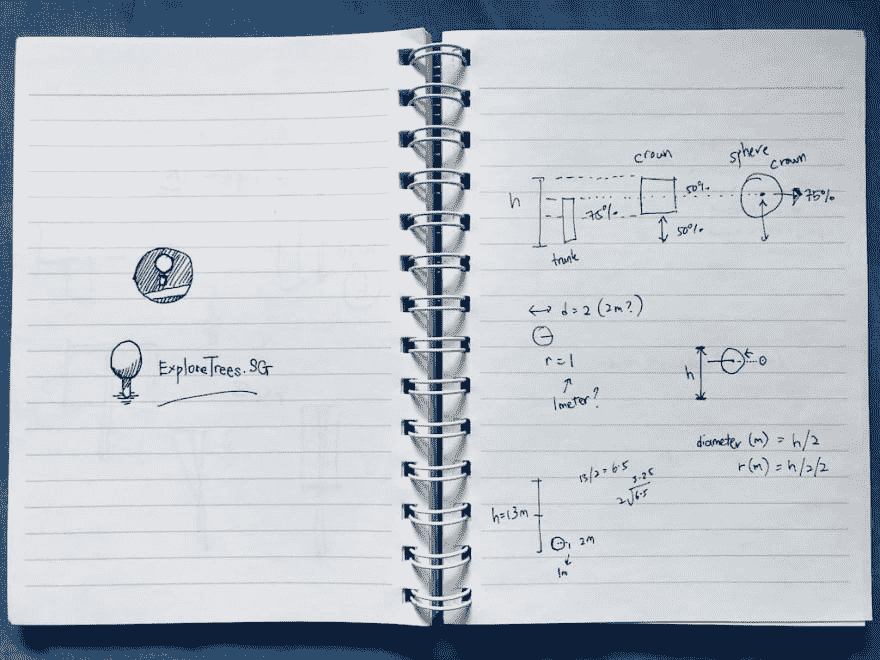 ExploreTrees.SG
crown
sphere
crown
h
75%
50%
75%
50%
trunk
d = 2 (2m?)
r = 1
1 meter?
h
diameter (m) = h/2
r(m) = h/2/2
13/2 = 6.5
3.25
2√6.5
h=13m
2m
1m